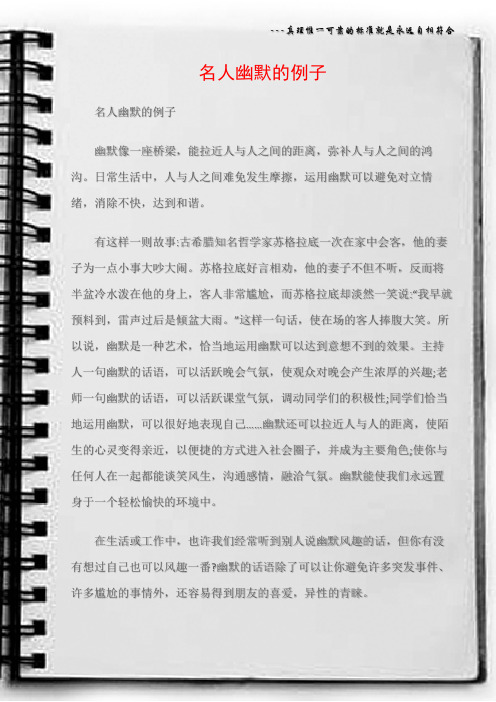 ---真理惟一可靠的标准就是永远自相符合
名人幽默的例子
名人幽默的例子
幽默像一座桥梁，能拉近人与人之间的距离，弥补人与人之间的鸿
沟。日常生活中，人与人之间难免发生摩擦，运用幽默可以避免对立情
绪，消除不快，达到和谐。
有这样一则故事:古希腊知名哲学家苏格拉底一次在家中会客，他的妻
子为一点小事大吵大闹。苏格拉底好言相劝，他的妻子不但不听，反而将
半盆冷水泼在他的身上，客人非常尴尬，而苏格拉底却淡然一笑说:“我早就
预料到，雷声过后是倾盆大雨。”这样一句话，使在场的客人捧腹大笑。所
以说，幽默是一种艺术，恰当地运用幽默可以达到意想不到的效果。主持
人一句幽默的话语，可以活跃晚会气氛，使观众对晚会产生浓厚的兴趣;老
师一句幽默的话语，可以活跃课堂气氛，调动同学们的积极性;同学们恰当
地运用幽默，可以很好地表现自己……幽默还可以拉近人与人的距离，使陌
生的心灵变得亲近，以便捷的方式进入社会圈子，并成为主要角色;使你与
任何人在一起都能谈笑风生，沟通感情，融洽气氛。幽默能使我们永远置
身于一个轻松愉快的环境中。
在生活或工作中，也许我们经常听到别人说幽默风趣的话，但你有没
有想过自己也可以风趣一番?幽默的话语除了可以让你避免许多突发事件、
许多尴尬的事情外，还容易得到朋友的喜爱，异性的青睐。